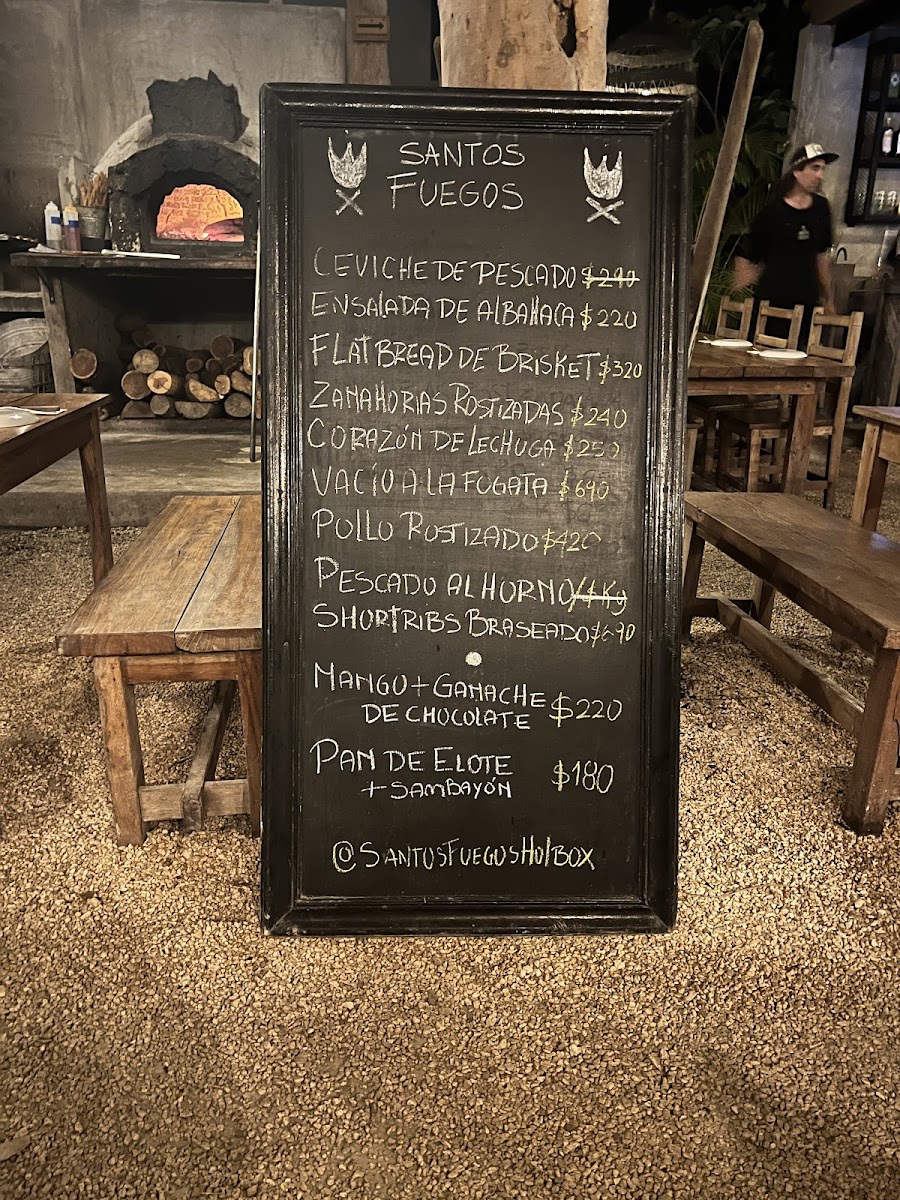 SANTOS
FUEGOS
CEVICHE DE PESCADO $290
ENSALADA DE ALBAHACA $220
FLATBREAD DE BRISKET $320
ZANAHORIAS ROSTIZADAS $240
CORAZÓN DE LECHUGA $250
VACÍO A LA FOGATA $690
POLLO ROSTIZADO $420
PESCADO AL HORNO /1Kg
SHORTRIBS BRASEADO
MANGO + GANACHE
DE CHOCOLATE $220
PAN DE ELOTE
+ SAMBAYÓN $180
@SANTOSFUEGOSHOlBOX